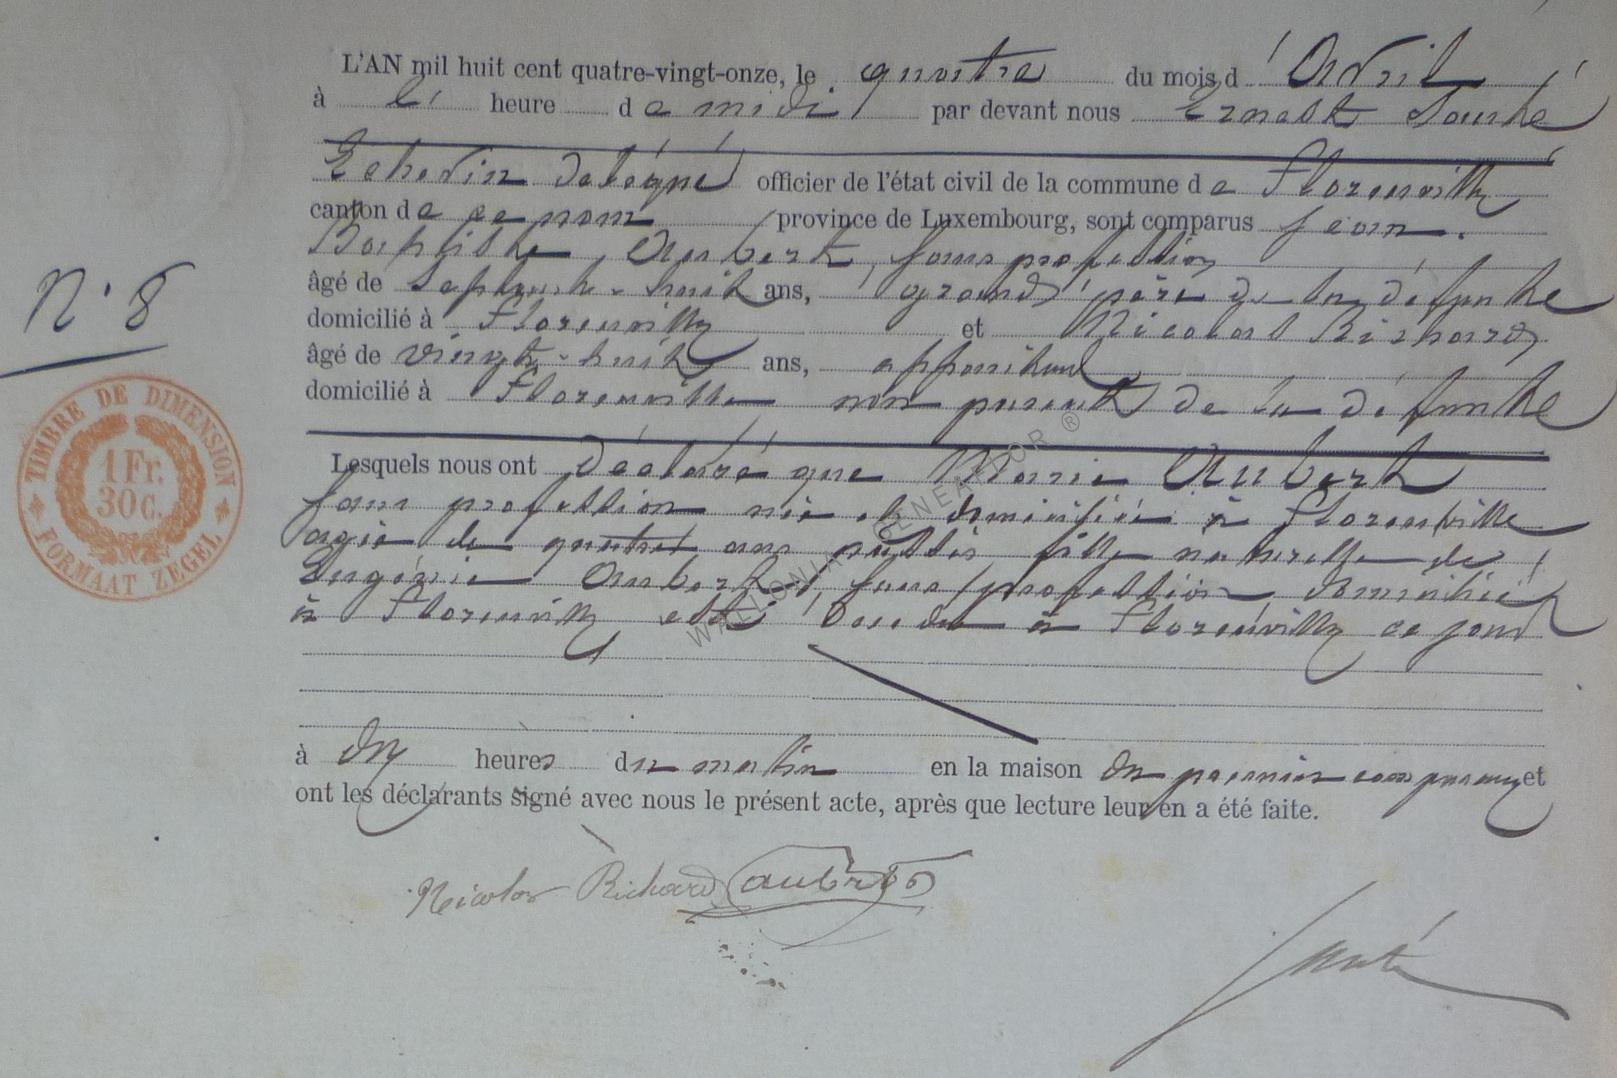 L'AN mil huit cent quatre-vingt-onze, le quatre du mois d'Avril
à l' heure de midi par devant nous Ernest
Echevin délégué officier de l'état civil de la commune de Florenville
canton de ce nom province de Luxembourg, sont comparus Jean
Baptiste Aubert, sans profession
âgé de Septante-huit ans, grand père de la défunte
domicilié à Florenville et Nicolas Richard
âgé de vingt-huit ans,
domicilié à Florenville non parent de la défunte
N° 8
TIMBRE DE DIMENSION
1 Fr.
30 C.
FORMAAT ZEGEL
Lesquels nous ont déclaré que Marie Aubert
sans profession née et domiciliée à Florenville
agée de quatre ans fille naturelle de
Eugénie Aubert, sans profession domiciliée
à Florenville est décédée à Florenville ce jourd
à dix heures du matin en la maison du premier comparant et
ont les déclarants signé avec nous le présent acte, après que lecture leur en a été faite.
Nicolas Richard Aubert
WALLONIA GENEATOR ®